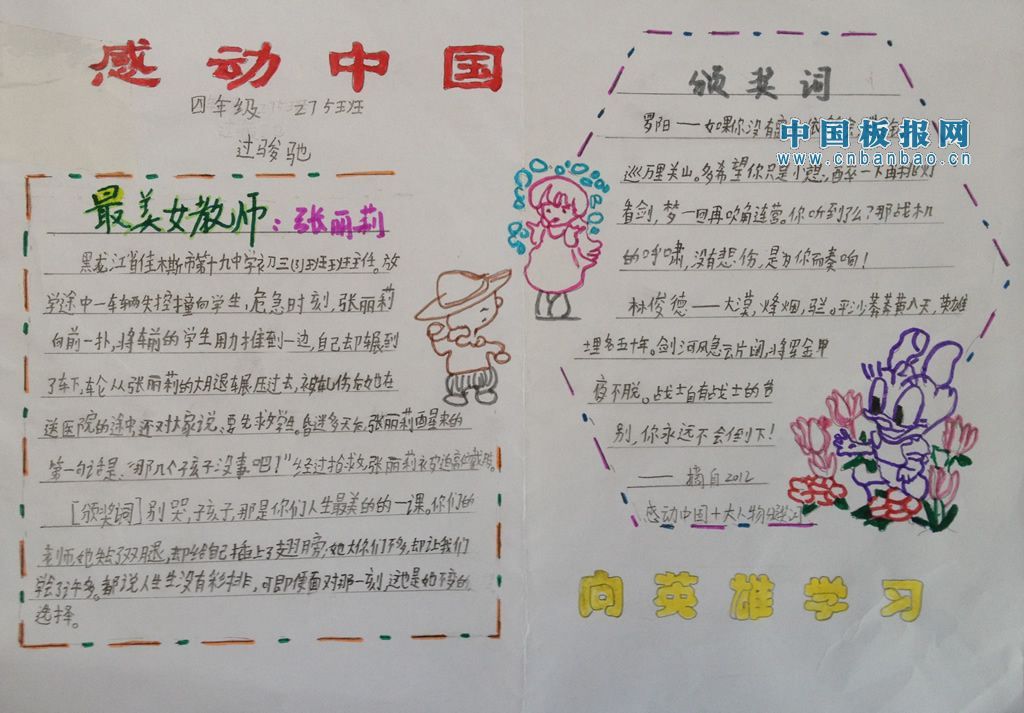 感动中国
四年级 275班
过骏驰
最美女教师：张丽莉
黑龙江省佳木斯市第十九中学初三(3)班班主任。放
学途中一车辆失控撞向学生，危急时刻，张丽莉
向前一扑，将车前的学生用力推到一边，自己却辗到
了车下，车轮从张丽莉的大腿辗压过去，被轧伤后她在
送医院的途中，还对大家说、要先求学生。昏迷多天后，张丽莉醒星来的
第一句话是、"那几个孩子没事吧！"经过抢救，张丽莉被迫高位截肢。
[颁奖词]别哭，孩子，那是你们人生最美的的一课。你们的
老师，她失了双腿，却给自己插上了翅膀；她大你们不多，却让我们
学会了许多。都说人生没有彩排，可即便面对那一刻，这也是她不变的
选择。
颁奖词
罗阳——如果你没有
中国板报网
www.cnbanbao.cn
巡万里关山。多希望你只是小憩，醉一下再挑灯
看剑，梦一回再吹角连营。你听到了么？那战机
的呼啸，没有悲伤，是为你而奏响！
林俊德——大漠，烽烟，马兰。平沙莽莽黄入天，英雄
埋名五十年。剑河风急云片阔，将军金甲
夜不脱。战士自有战士的告
别，你永远不会倒下！
——摘自2012
感动中国十大人物颁奖词
向英雄学习